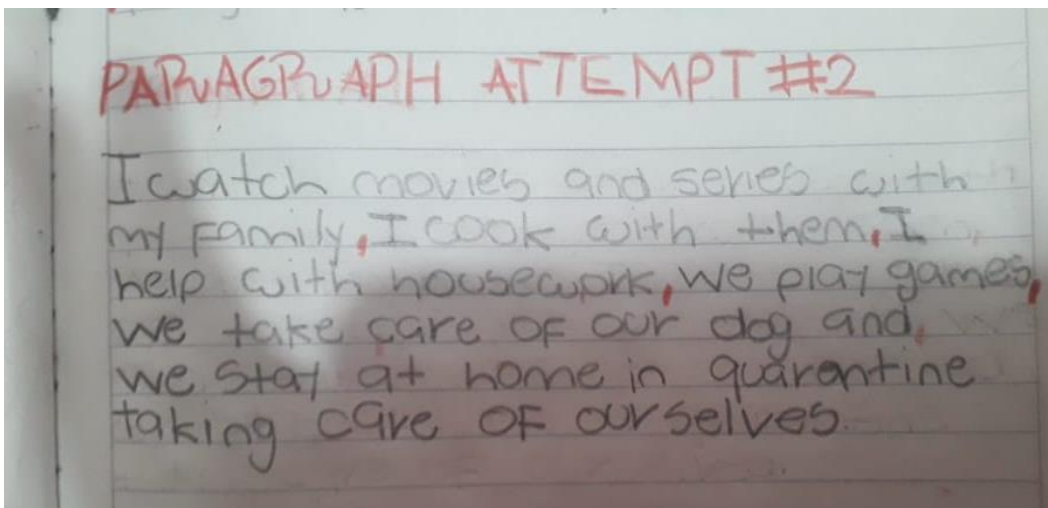 PARAGRAPH ATTEMPT #2
I watch movies and series with
my family, I cook with them, I
help with housework, we play games,
we take care of our dog and
we stay at home in quarantine
taking care of ourselves.